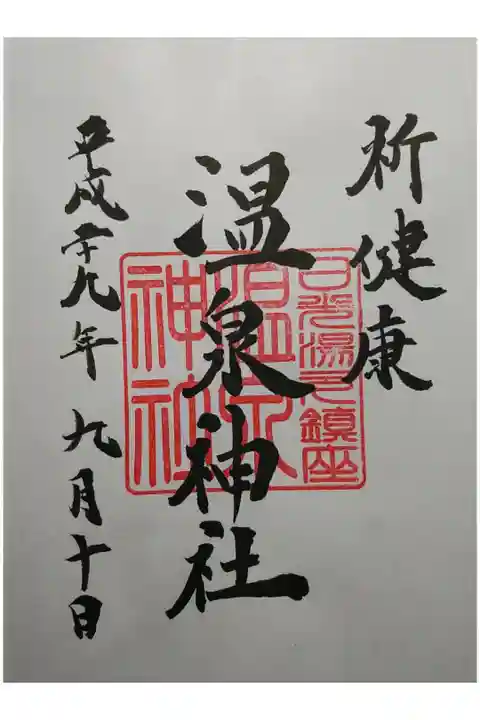 祈健康
温泉神社
平成二十九年 九月十日
日光湯元鎮座
温泉神社